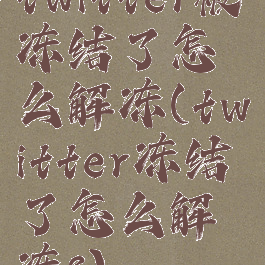 twitter被
冻结了怎
么解冻(tw
itter冻结
了怎么解
冻s)